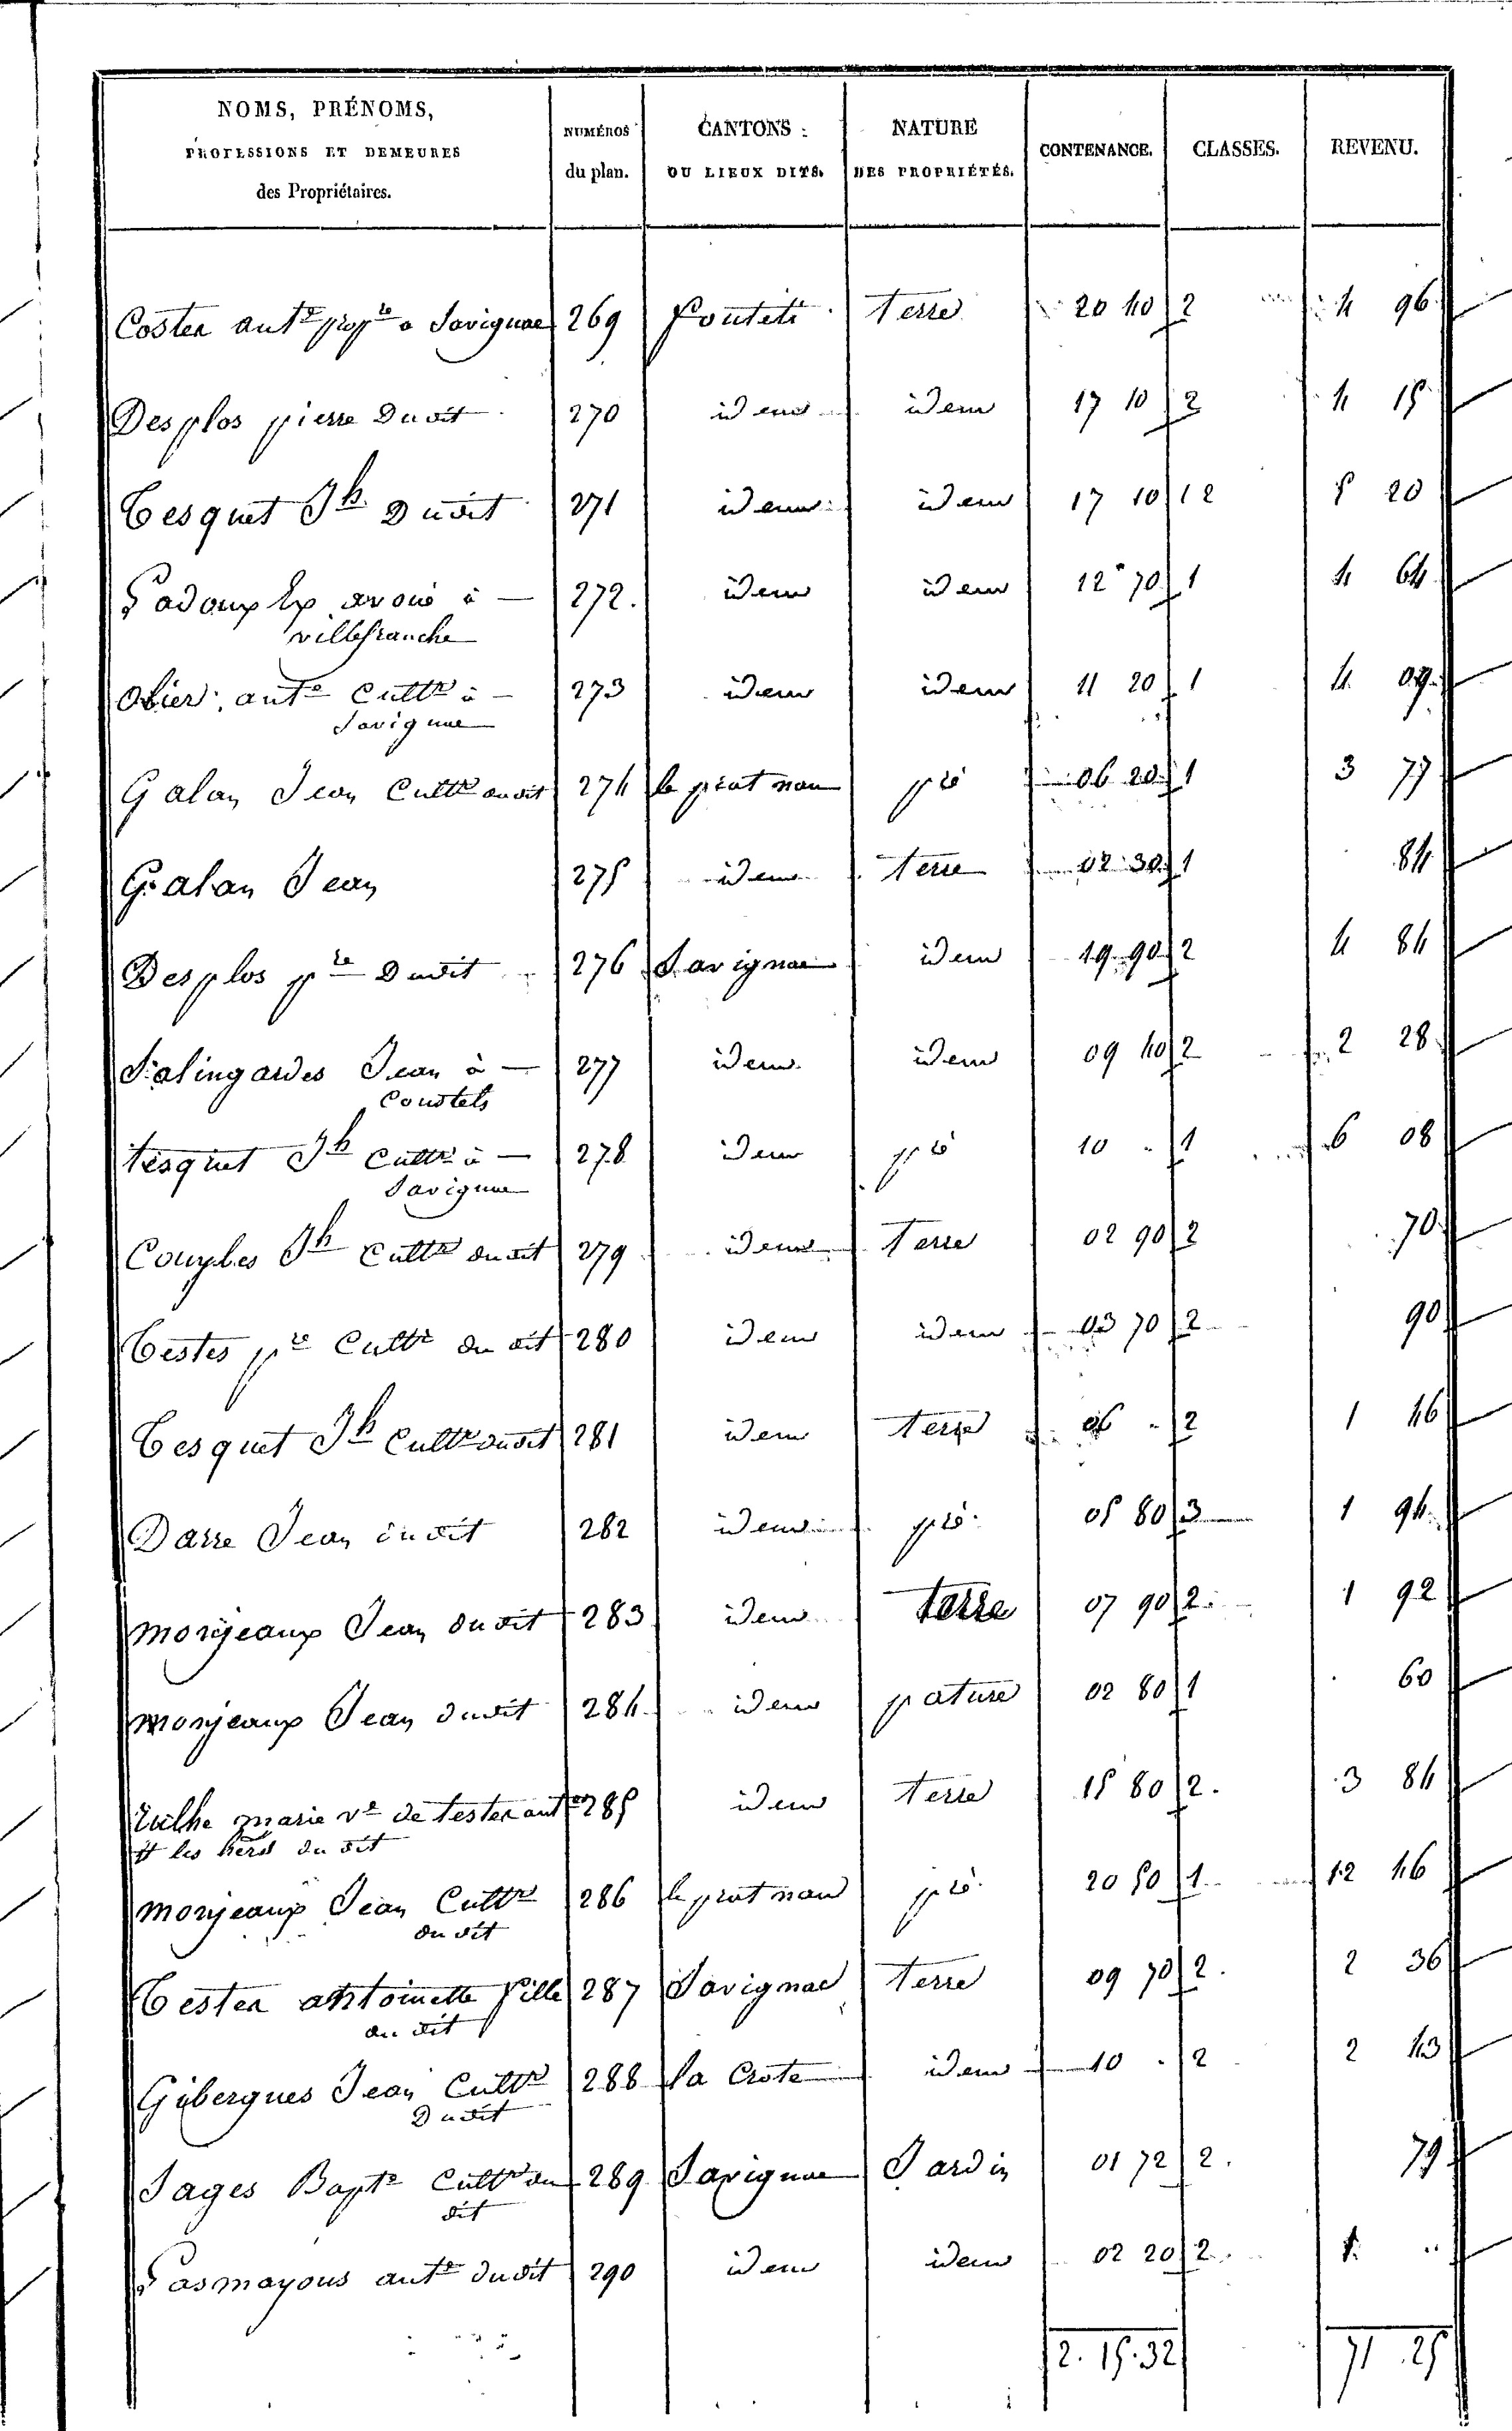 NOMS, PRÉNOMS, PROFESSIONS ET DEMEURES des Propriétaires. NUMÉROS du plan. CANTONS OU LIEUX DITS. NATURE DES PROPRIÉTÉS. CONTENANCE. CLASSES. REVENU.
Coster ante propre a Savignac 269 terre 20 40 2 4 96
Desplos pierre Dudit 270 idem idem 17 10 2 4 15
Tesquet Jh Dudit 271 idem idem 17 10 12 5 20
avoué à — 272. idem idem 12 70 1 4 64
villefranche
ante Cultr à — 273 idem idem 11 20 1 4 09
Savignac
Galan Jean Cultr dudit 274 le prat nau pré 06 20 1 3 77
Galan Jean 275 idem terre 02 30 1 84
Desplos pre Dudit 276 Savignac idem 19 90 2 4 84
Salingardes Jean à — 277 idem idem 09 40 2 2 28
Coustels
tesquet Jh Cultr à — 278 idem pré 10 . 1 6 08
Savignac
Couybes Jh Cultr dudit 279 idem Terre 02 90 2 70
Testes pre Cultr du dit 280 idem idem 03 70 2 90
Tesquet Jh Cultr dudit 281 idem terre 06 . 2 1 46
Darre Jean dudit 282 idem pré 05 80 3 1 94
monjeaux Jean dudit 283 idem terre 07 90 2. 1 92
monjeaux Jean dudit 284 idem pature 02 80 1 60
marie ve de tester ante 285 idem terre 15 80 2. 3 84
et les herst du dit
monjeaux Jean Cultr 286 le prat nau pré 20 50 1 12 46
du dit
Tester antoinette fille 287 Savignac terre 09 70 2. 2 36
du dit
Gibergues Jean Cultr 288 la Crote idem 10 . 2 2 43
Dudit
Sages Bapte Cultr du 289 Savignac Jardin 01 72 2. 79
dit
Lasmayous ante dudit 290 idem idem 02 20 2. 1. ..
2. 15. 32 71 25